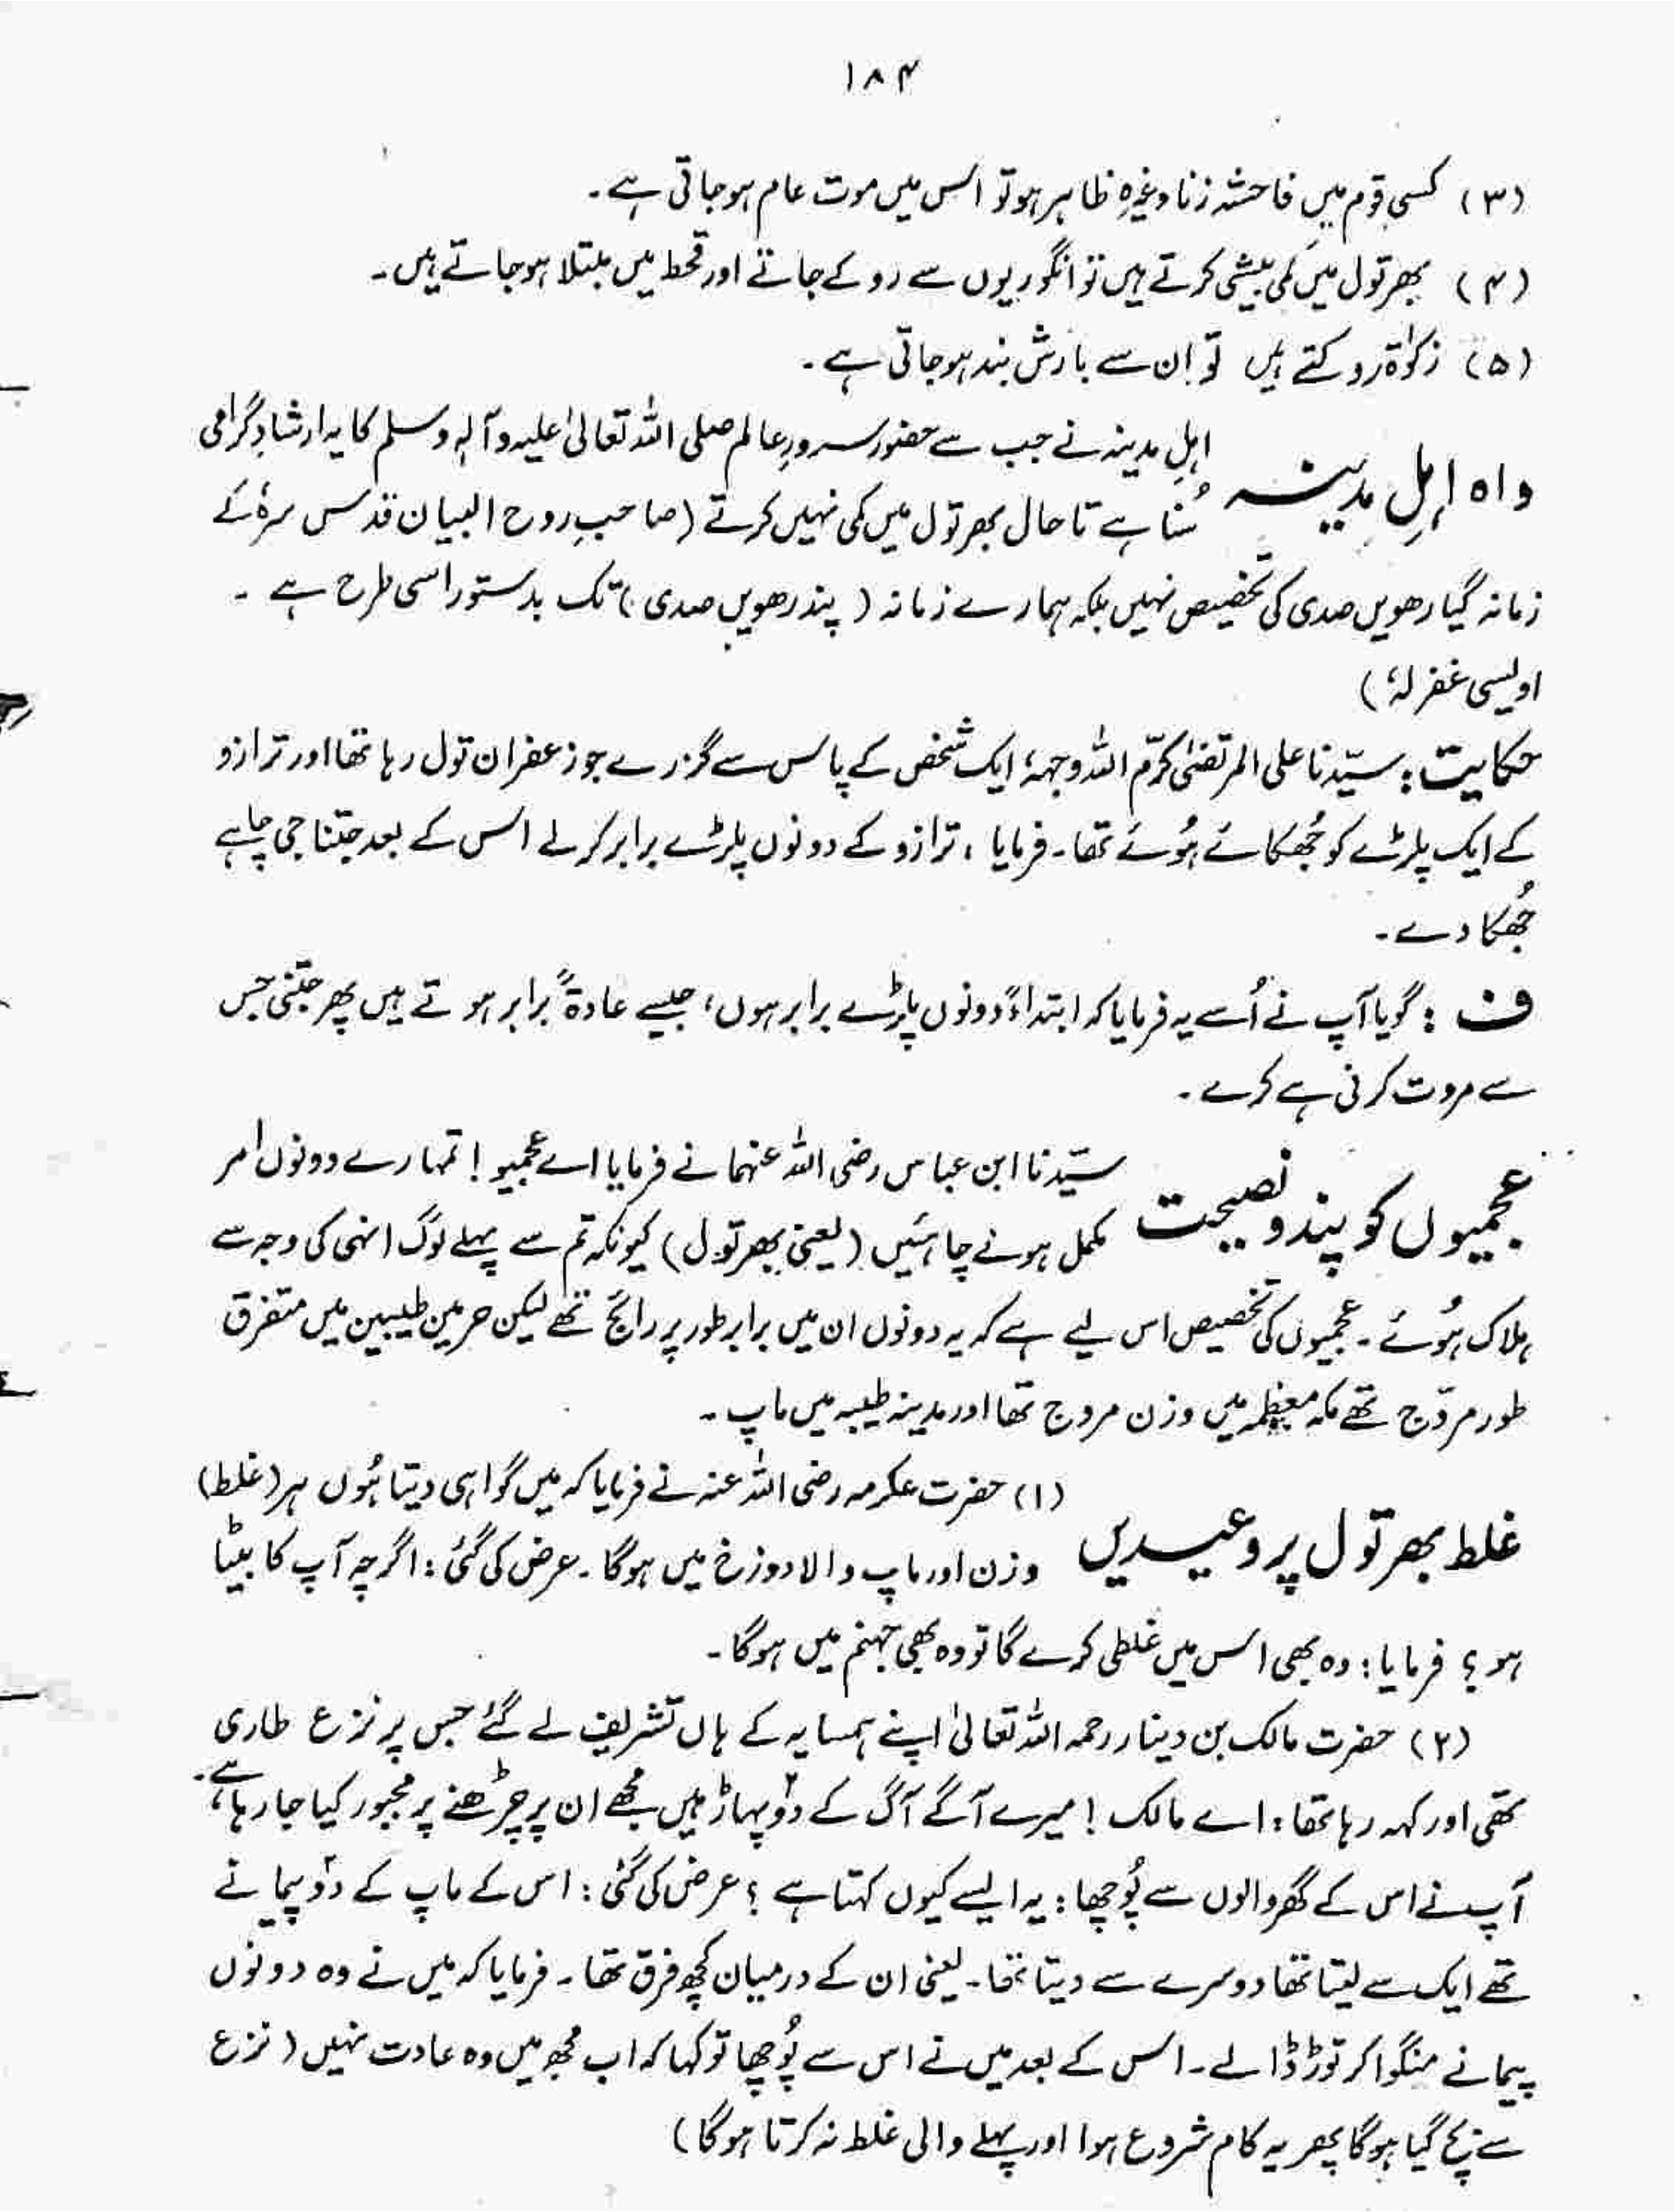 ۱۸۴
(۳) کسی قوم میں فاحشہ زنا وغیرہ ظاہر ہو تو اس میں موت عام ہو جاتی ہے۔
(۴) بھر تول میں کمی بیشی کرتے ہیں تو انگوریوں سے روکے جاتے اور قحط میں مبتلا ہو جاتے ہیں۔
(۵) زکوٰۃ روکتے ہیں تو ان سے بارش بند ہو جاتی ہے۔
واہ اہلِ مدینہ
اہلِ مدینہ نے جب سے حضور سرورِ عالم صلی اللہ تعالیٰ علیہ وآلہٖ وسلم کا یہ ارشادِ گرامی
سُنا ہے تا حال بھر تول میں کمی نہیں کرتے (صاحبِ روح البیان قدس سرہٗ کے
زمانہ گیارھویں صدی کی تخصیص نہیں بلکہ ہمارے زمانہ (پندرھویں صدی) تک بدستور اسی طرح ہے ۔
اویسی غفرلہٗ)
حکایت : سیّدنا علی المرتضیٰ کرّم اللہ وجہہٗ ایک شخص کے پاس سے گزرے جو زعفران تول رہا تھا اور ترازو
کے ایک پلڑے کو جُھکائے ہُوئے تھا۔ فرمایا ، ترازو کے دونوں پلڑے برابر کرلے اس کے بعد جتنا جی چاہے
جُھکا دے۔
ف : گویا آپ نے اُسے یہ فرمایا کہ ابتداءً دونوں پلڑے برابر ہوں، جیسے عادۃً برابر ہوتے ہیں پھر جتنی جس
سے مروت کرنی ہے کرے ۔
عجمیوں کو پند و نصیحت
سیّدنا ابن عباس رضی اللہ عنہما نے فرمایا اے عجمیو ! تمہارے دونوں امر
مکمل ہونے چاہئیں (یعنی بھر تول) کیونکہ تم سے پہلے لوگ انہی کی وجہ سے
ہلاک ہُوئے ۔ عجمیوں کی تخصیص اس لیے ہے کہ یہ دونوں ان میں برابر طور پر رائج تھے لیکن حرمین طیبین میں متفرق
طور مروّج تھے مکہ معظمہ میں وزن مروج تھا اور مدینہ طیبہ میں ماپ ۔
غلط بھر تول پر وعیدیں
(۱) حضرت عکرمہ رضی اللہ عنہ نے فرمایا کہ میں گواہی دیتا ہُوں ہر (غلط)
وزن اور ماپ والا دوزخ میں ہوگا ۔ عرض کی گئی : اگرچہ آپ کا بیٹا
ہو؟ فرمایا : وہ بھی اس میں غلطی کرے گا تو وہ بھی جہنم میں ہوگا۔
(۲) حضرت مالک بن دینار رحمہ اللہ تعالیٰ اپنے ہمسایہ کے ہاں تشریف لے گئے جس پر نزع طاری
تھی اور کہہ رہا تھا : اے مالک ! میرے آگے آگ کے دو پہاڑ ہیں مجھے ان پر چڑھنے پر مجبور کیا جا رہا ہے۔
آپ نے اس کے گھر والوں سے پُوچھا : یہ ایسے کیوں کہتا ہے ؟ عرض کی گئی : اس کے ماپ کے دو پیمانے
تھے ایک سے لیتا تھا دوسرے سے دیتا تھا۔ یعنی ان کے درمیان کچھ فرق تھا۔ فرمایا کہ میں نے وہ دونوں
پیمانے منگوا کر توڑ ڈالے۔ اس کے بعد میں نے اس سے پُوچھا تو کہا کہ اب مجھ میں وہ عادت نہیں (نزع
سے بچ گیا ہوگا پھر یہ کام شروع ہوا اور پہلے والی غلط نہ کرتا ہوگا)